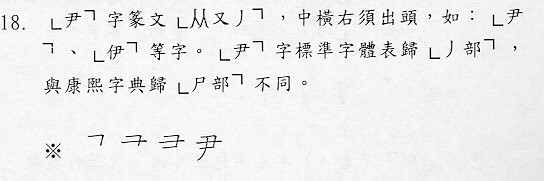 18. 「尹」字篆文「𠂈又丿」，中橫右須出頭，如：「尹
」、「伊」等字。「尹」字標準字體表歸「丿部」，
與康熙字典歸「尸部」不同。
※ ㄱ ⺕ 彐 尹